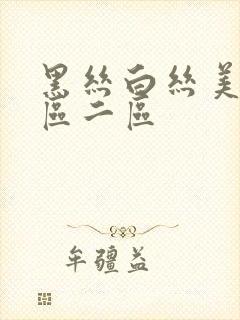 黑丝白丝美
區二區
牟疆益